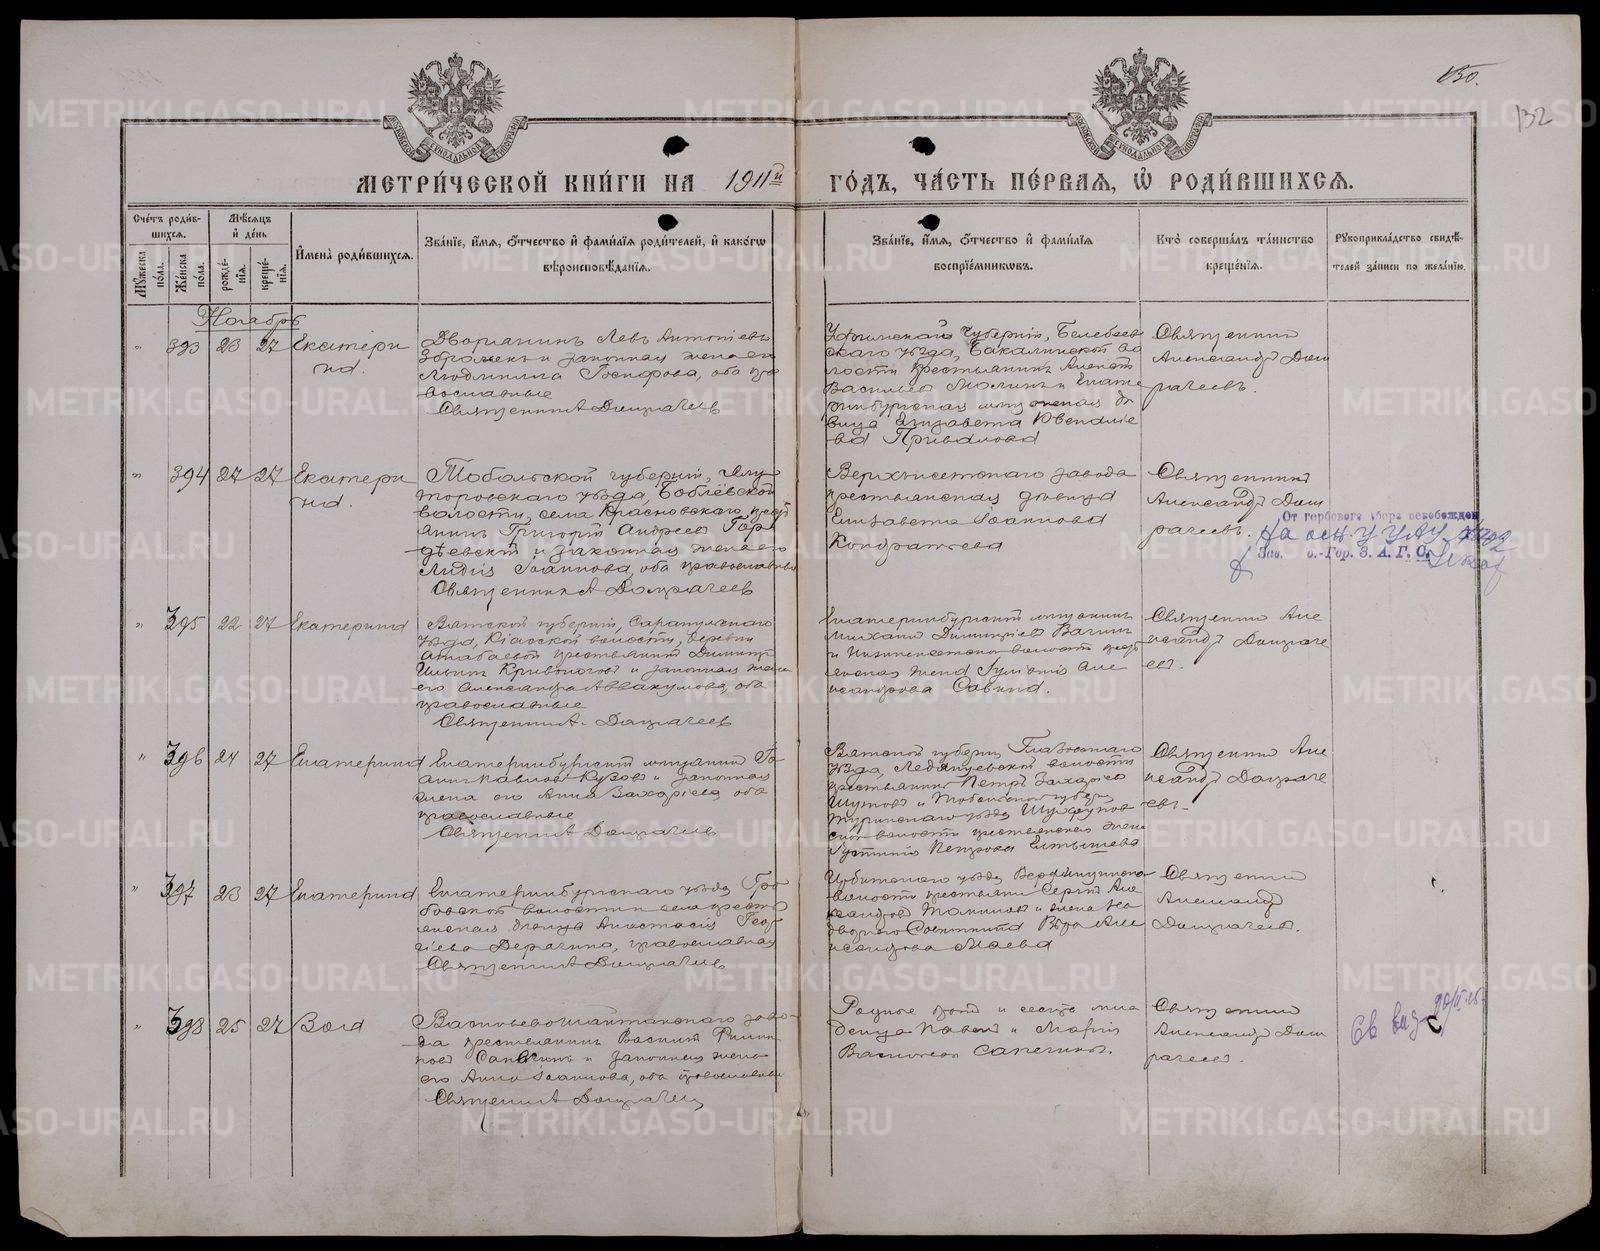 150.
132
МЕТРИЧЕСКОЙ КНИГИ НА 1911й ГОДЪ, ЧАСТЬ ПЕРВАЯ, Ѡ РОДИВШИХСЯ.
Счетъ родившихся.
Мужеска пола.
Женска пола.
Мѣсяцъ и день
рожденія.
крещенія.
Имена родившихся.
Званіе, имя, отчество и фамилія родителей, и какогѡ вѣроисповѣданія.
Званіе, имя, отчество и фамилія воспріемниковъ.
Кто совершалъ таинство крещенія.
Рукоприкладство свидѣтелей записи по желанію.
Ноябрь
" 393 23 27 Екатери
на.
Дворянинъ Левъ Антоніевъ
и законная жена его
Людмила Іосифова, оба пра
вославные
Священникъ А Домрачеев
Уфимской губерніи, Белебеев
скаго уѣзда, Бакалинской во
лости крестьянинъ Алексѣй
Васильев и Екате
ринбургская мѣщанская дѣ
вица Елизавета Ювеналіе
ва Привалова
Священникъ
Александръ Дом
рачеевъ.
" 394 27 27 Екатери
на.
Тобольской губерніи, Ялу
торовскаго уѣзда,
волости, села Красновскаго, крест
янинъ Григорій Андреев Гор
дѣевскій и законная жена его
Лидія Іоаннова, оба православные
Священникъ А Домрачеев
Верхъисетскаго завода
крестьянская дѣвица
Елизавета Іоаннова
Кондратьева
Священникъ
Александръ Дом
рачеевъ.
От гербового сбора освобожден
на осн.
Зав. Гор. З. А. Г. С.
" 395 22 27 Екатерина
Вятской губерніи, Сарапульскаго
уѣзда, Кіасской волости, деревни
Атабаевой крестьянинъ Димитрій
Ильинъ Кривоногов и законная жена
его Александра Аввакумова, оба
православные
Священникъ А. Домрачеев
Екатеринбургскій мѣщанинъ
Михаилъ Димитріев Вагин
и Нижнеисетской волости крест
янская жена Іуліанія Але
ксандрова Савина.
Священникъ Але
ксандръ Домраче
евъ.
" 396 24 27 Екатерина
Екатеринбургскій мѣщанинъ Іо
аннъ Павлов Кузов и законная
жена его Анна Захаріева, оба
православные
Священникъ А Домрачеев
Вятской губерніи Глазовскаго
уѣзда, волости
крестьянинъ Петръ Захаров
Шутов и Тобольской губерніи
Туринскаго уѣзда
ской волости крестьянская жена
Іустинія Петрова Елтышева
Священникъ Але
ксандръ Домраче
евъ.
" 397 23 27 Екатерина
Екатеринбургскаго уѣзда Гро
бовской волости и села кресть
янская дѣвица Анастасія Геор
гіева Дерягина, православная
Священникъ А Домрачеев
Ирбитскаго уѣзда
волости крестьянинъ Сергій Але
ксандров и жена На
дворнаго Совѣтника Вѣра Але
ксандрова Маева
Священникъ
Александръ
Домрачеев.
" 398 25 27 Вѣра
Васильевошайтанскаго заво
да крестьянинъ Василій Филип
пов Сапегинъ и законная жена
его Анна Іоаннова, оба православные
Священникъ А Домрачеев
Родные братъ и сестра мла
денца Павел и Марія
Васильевы Сапегины.
Священникъ
Александръ Дом
рачеев.
METRIKI.GASO-URAL.RU